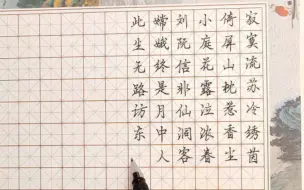 寂寞流苏冷绣茵
倚屏山枕惹香尘
小庭花露泣浓春
刘阮信非仙洞客
嫦娥终是月中人
此生无路访东